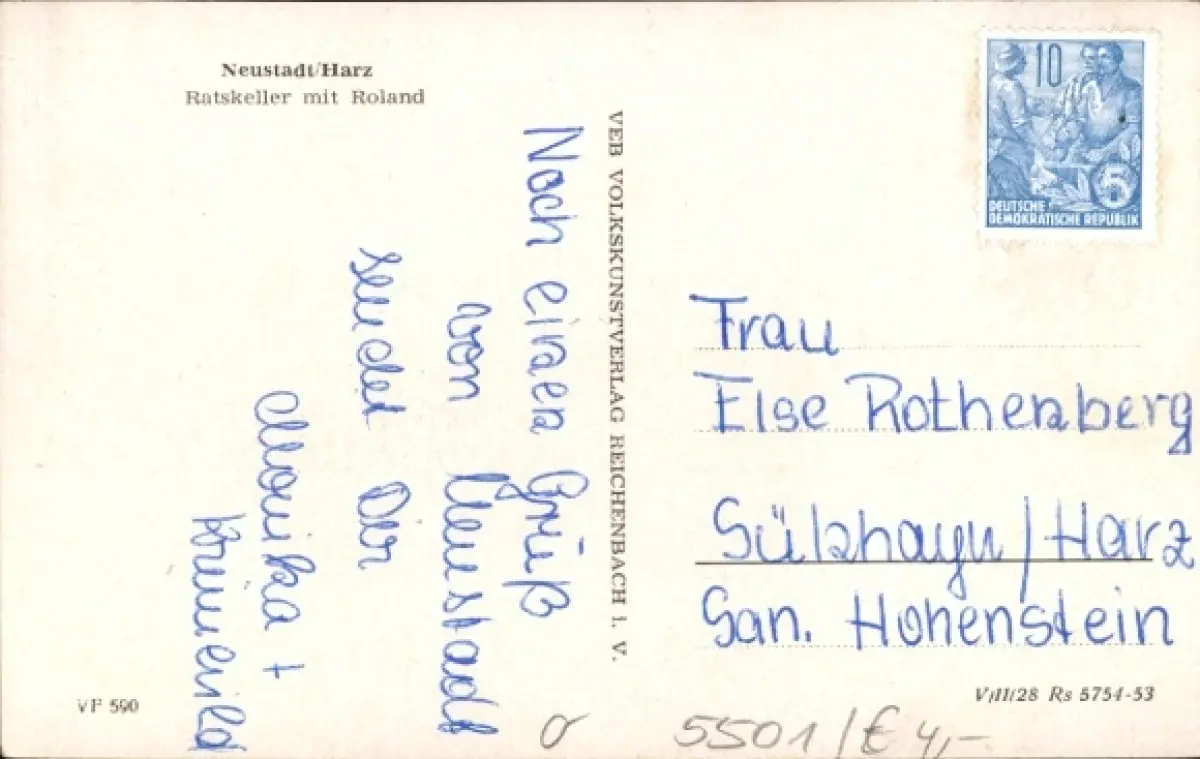 Neustadt/Harz
Ratskeller mit Roland
Noch einen Gruß
von Neustadt
sendet Dir
Monika +
Krimhild
VEB VOLKSKUNSTVERLAG REICHENBACH i. V.
10
5
DEUTSCHE
DEMOKRATISCHE REPUBLIK
Frau
Else Rothenberg
Sülzhayn/Harz
San. Hohenstein
VF 590
V/II/28 Rs 5754-53
5501/€ 4,-